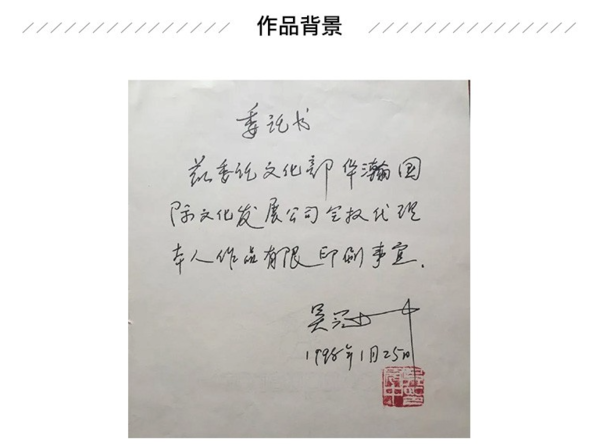 作品背景
委托书
兹委托文化部华瀚国
际文化发展公司全权代理
本人作品有限印刷事宜.
吴冠中
1998年1月25日